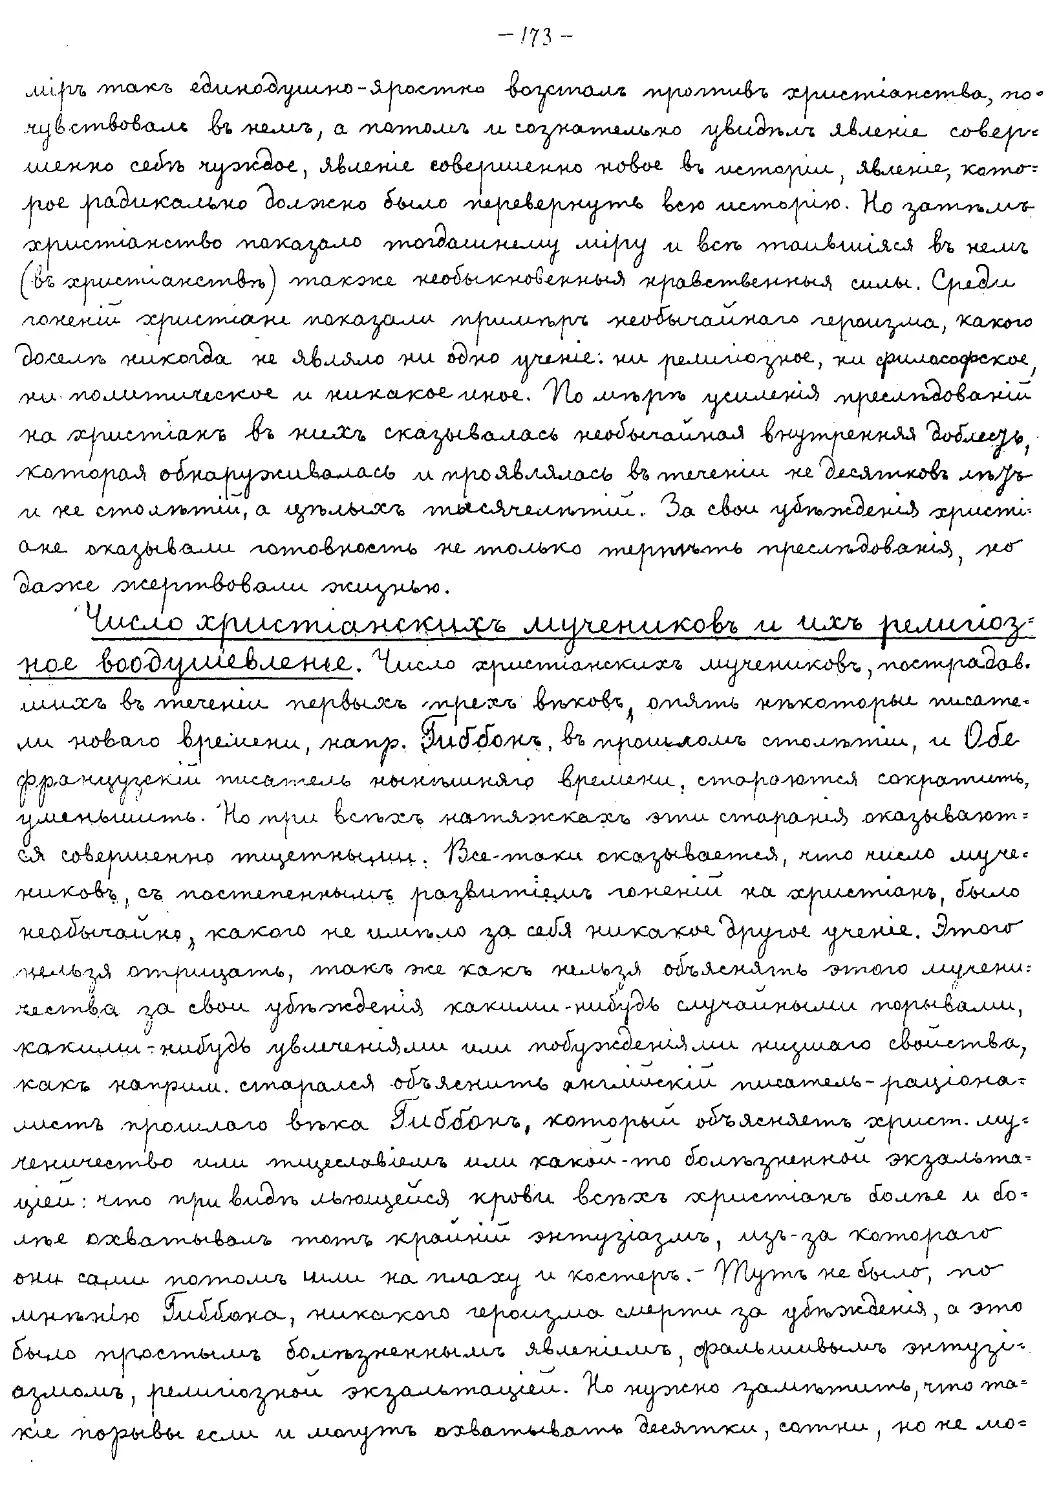 -173-
мiръ такъ единодушно-яростно возсталъ противъ христiанства, по-
чувствовалъ въ немъ, а потомъ и сознательно увидѣлъ явленiе совер-
шенно себѣ чуждое, явленiе совершенно новое въ исторiи, явленiе, кото-
рое радикально должно было перевернуть всю исторiю. Но затѣмъ
христiанство показало тогдашнему мiру и всѣ таившiяся въ немъ
(въ христiанствѣ) также необыкновенныя нравственныя силы. Среди
гоненiй христiане показали примѣръ необычайнаго героизма, какого
доселѣ никогда не являло ни одно ученiе: ни религiозное, ни философское,
ни политическое и никакое иное. По мѣрѣ усиленiя преслѣдованiй
на христiанъ въ нихъ сказывалась необычайная внутренняя доблесть,
которая обнаруживалась и проявлялась въ теченiи не десятковъ лѣтъ
и не столѣтiй, а цѣлыхъ тысячелѣтiй. За свои убѣжденiя христi-
ане оказывали готовность не только терпѣть преслѣдованiя, но
даже жертвовали жизнью.
Число христiанскихъ мучениковъ и ихъ религiоз-
ное воодушевленiе. Число христiанскихъ мучениковъ, пострадав-
шихъ въ теченiи первыхъ трехъ вѣковъ, опять нѣкоторые писате-
ли новаго времени, напр. Гиббонъ, въ прошломъ столѣтiи, и Обе
французскiй писатель нынѣшняго времени, стараются сократить,
уменьшить. Но при всѣхъ натяжкахъ эти старанiя оказывают-
ся совершенно тщетными. Все-таки оказывается, что число муче-
никовъ, съ постепеннымъ развитiемъ гоненiй на христiанъ, было
необычайно, какого не имѣло за себя никакое другое ученiе. Этого
нельзя отрицать, такъ же какъ нельзя объяснять этого мучени-
чества за свои убѣжденiя какими-нибудь случайными порывами,
какими-нибудь увлеченiями или побужденiями низшаго свойства,
какъ наприм. старался объяснить англiйскiй писатель-рацiона-
листъ прошлаго вѣка Гиббонъ, который объясняетъ христ. му-
ченичество или тщеславiемъ или какой-то болѣзненной экзальта-
цiей: что при видѣ льющейся крови всѣхъ христiанъ болѣе и бо-
лѣе охватывалъ тотъ крайнiй энтузiазмъ, изъ-за котораго
они сами потомъ шли на плаху и костеръ.- Тутъ не было, по
мнѣнiю Гиббона, никакого героизма смерти за убѣжденiя, а это
было простымъ болѣзненнымъ явленiемъ, фальшивымъ энтузi-
азмомъ, религiозной экзальтацiей. Но нужно замѣтить, что та-
кiе порывы если и могутъ охватывать десятки, сотни, но не мо-